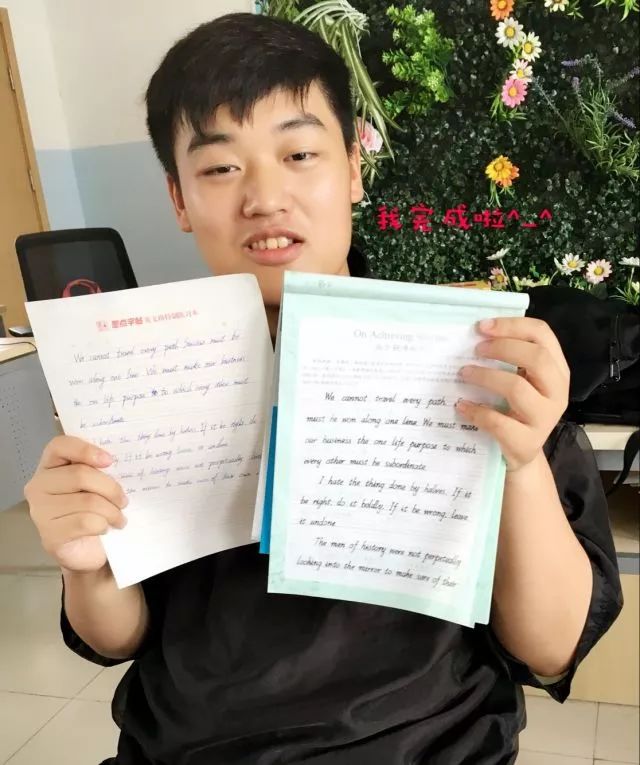 我完成啦^_^
墨点字帖 英文格特训练习本
We cannot travel every path. Success must be
won along one line. We must make our business
the one life purpose to which every other must
be subordinate.
I hate the thing done by halves. If it be right, do
it boldly. If it be wrong, leave it undone.
The men of history were not perpetually
On Achieving Success
We cannot travel every path.
must be won along one line. We must make
our business the one life purpose to which
every other must be subordinate.
I hate the thing done by halves. If it
be right, do it boldly. If it be wrong, leave
it undone.
The men of history were not perpetually
looking into the mirror to make sure of their